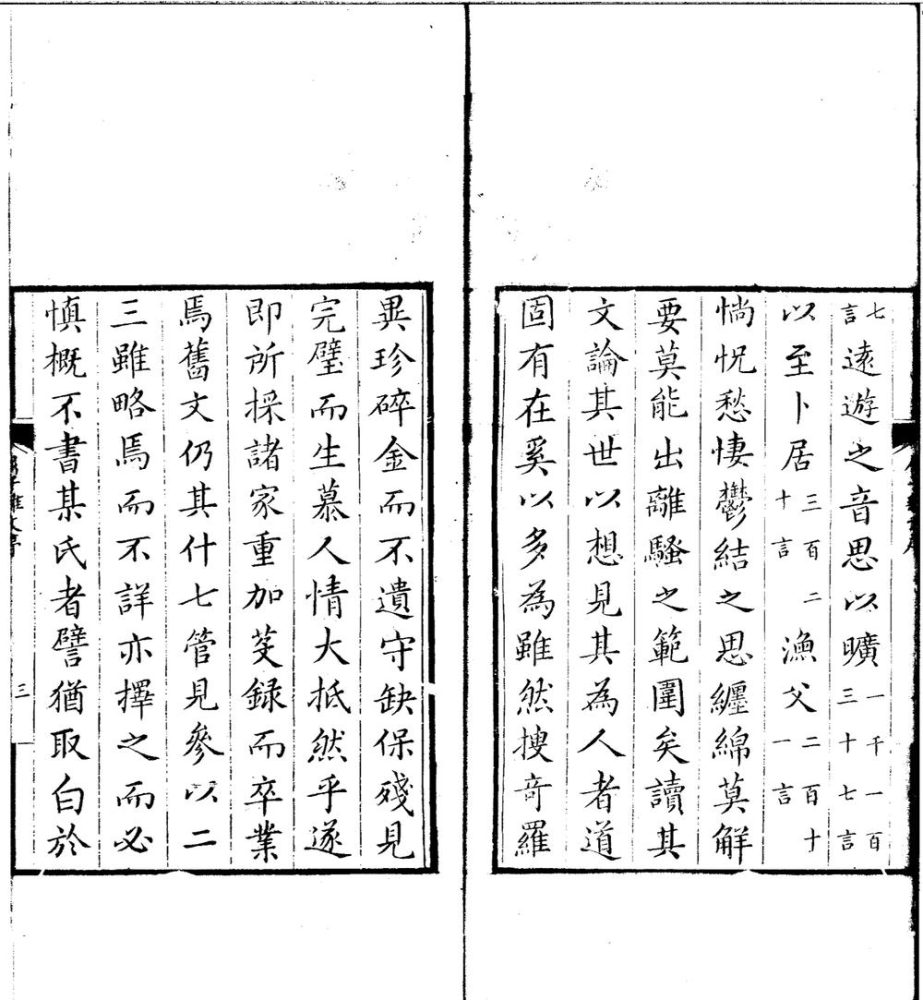 七言遠遊之音思以曠一千一百三十七言
以至卜居三百二十言漁父二百十一言
惝怳愁悽鬱結之思纏綿莫解
要莫能出離騷之範圍矣讀其
文論其世以想見其為人者道
固有在奚以多為雖然搜奇羅
異珍碎金而不遺守缺保殘見
完璧而生慕人情大抵然乎遂
即所採諸家重加芟録而卒業
焉舊文仍其什七管見參以二
三雖略焉而不詳亦擇之而必
慎概不書某氏者譬猶取白於
三